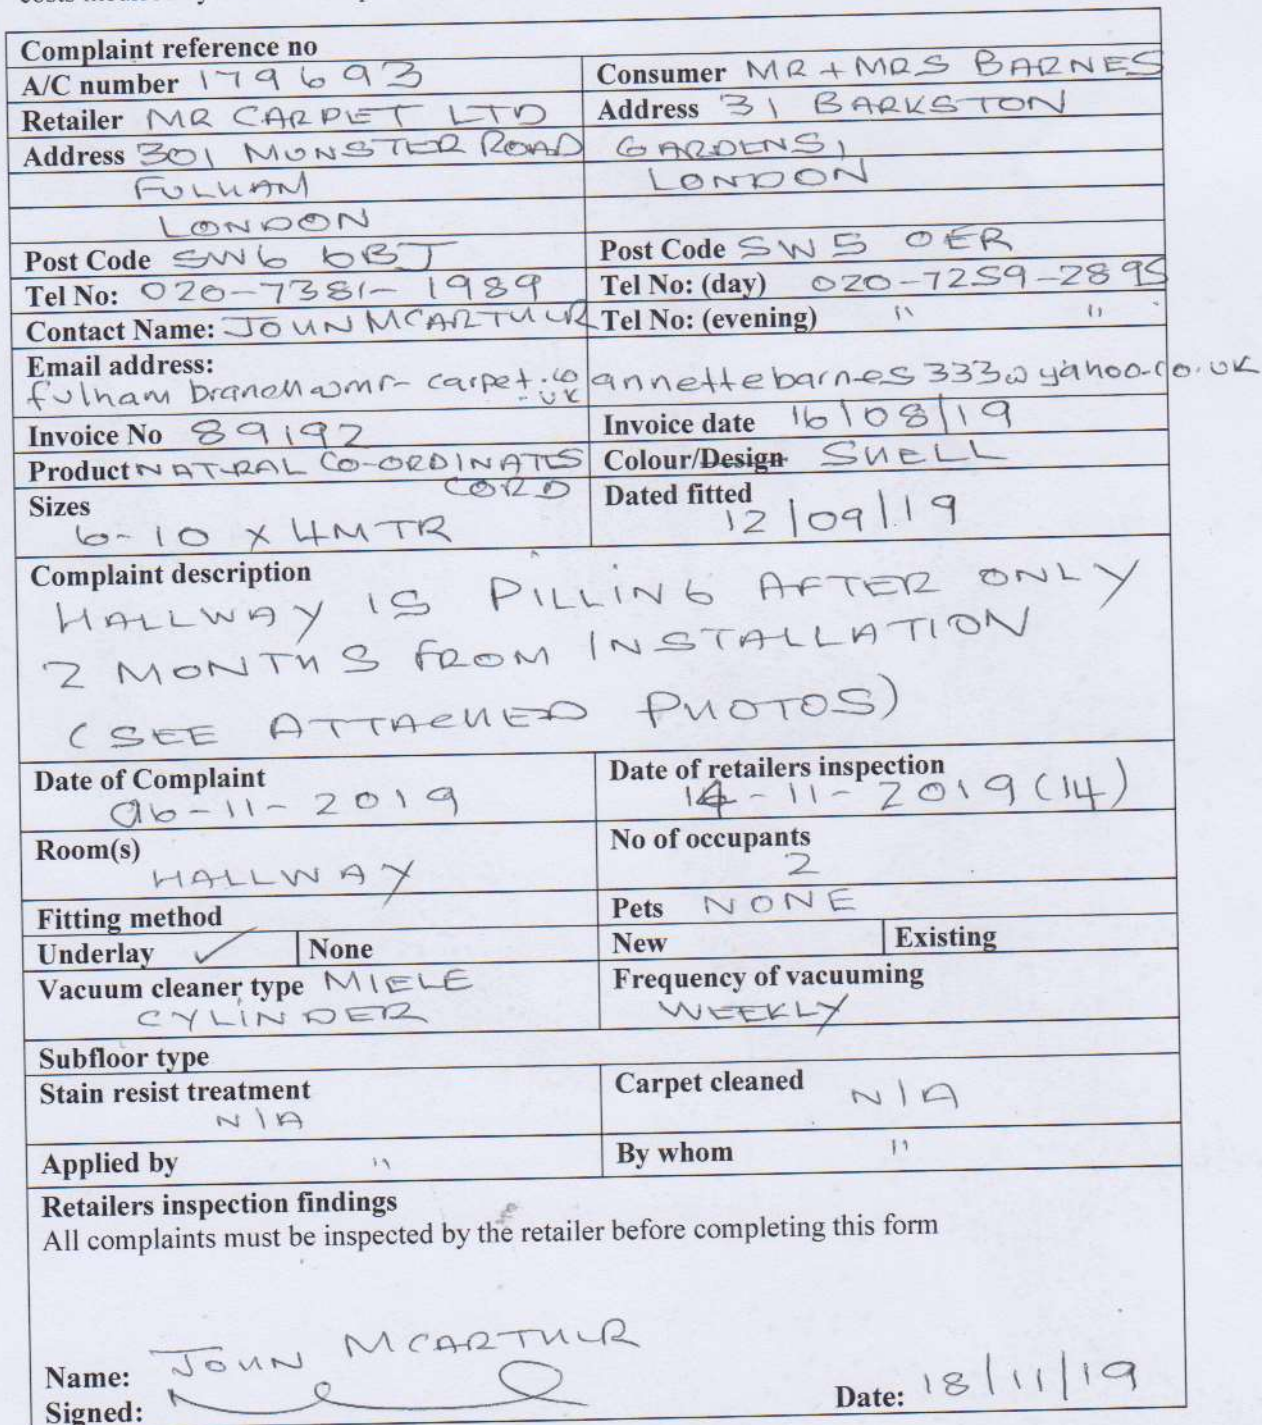 Complaint reference no
A/C number 179693 Consumer MR + MRS BARNES
Retailer MR CARPET LTD Address 31 BARKSTON
Address 301 MUNSTER ROAD GARDENS,
FULHAM LONDON
LONDON
Post Code SW6 6BJ Post Code SW5 0ER
Tel No: 020-7381-1989 Tel No: (day) 020-7259-2895
Contact Name: JOHN MCARTHUR Tel No: (evening) " "
Email address:
fulham branch@mr-carpet.co annettebarnes333@yahoo.co.uk
-uk
Invoice No 89192 Invoice date 16/08/19
Product NATURAL CO-ORDINATES Colour/Design SHELL
CORD
Sizes Dated fitted
6-10 x 4MTR 12/09/19
Complaint description
HALLWAY IS PILLING AFTER ONLY
2 MONTHS FROM INSTALLATION
(SEE ATTACHED PHOTOS)
Date of Complaint Date of retailers inspection
06-11-2019 14-11-2019 (14)
Room(s) No of occupants
HALLWAY 2
Fitting method Pets NONE
Underlay ✓ None New Existing
Vacuum cleaner type MIELE Frequency of vacuuming
CYLINDER WEEKLY
Subfloor type
Stain resist treatment Carpet cleaned N/A
N/A
Applied by " By whom "
Retailers inspection findings
All complaints must be inspected by the retailer before completing this form
Name: JOHN MCARTHUR
Signed: Date: 18/11/19